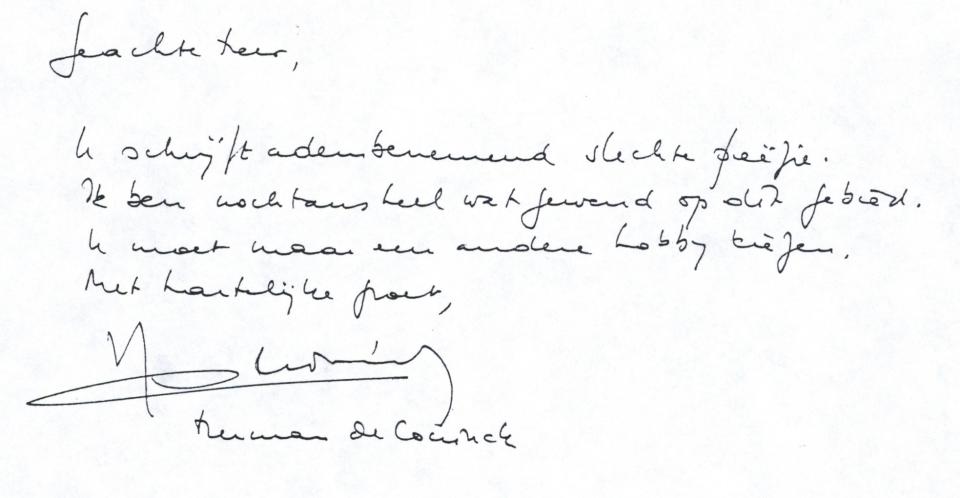 Geachte Heer,
U schrijft adembenemend slechte poëzie.
Ik ben nochtans heel wat gewend op dit gebied.
U moet maar een andere hobby kiezen.
Met hartelijke groet,
Herman de Coninck